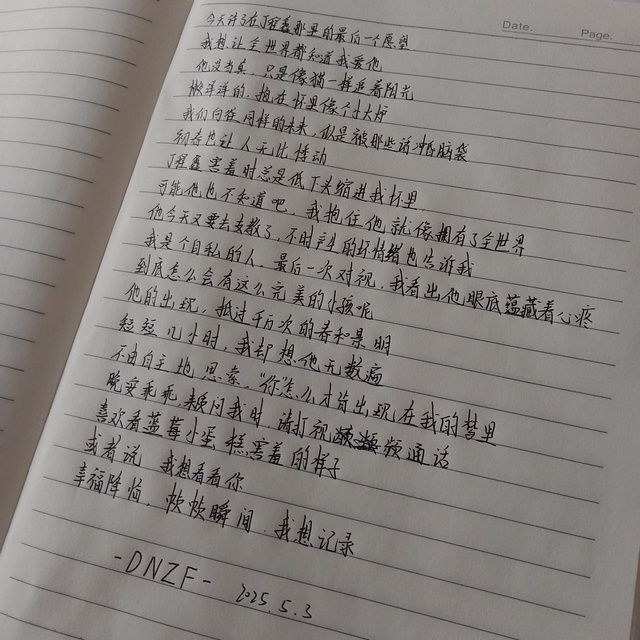 Date.
Page.
今天许了在丁程鑫那里的最后一个愿望
我想让全世界都知道我爱他
他没当真，只是像猫一样追着阳光
懒洋洋的，抱在怀里像个小火炉
我们向往同样的未来，似是被那些话冲昏脑袋
初春也让人无比悸动
丁程鑫害羞时总是低下头缩进我怀里
可能他也不知道吧，我抱住他就像拥有了全世界
他今天又要去支教了，不时产生的坏情绪也告诉我
我是个自私的人，最后一次对视，我看出他眼底蕴藏着心疼
到底怎么会有这么完美的小孩呢
他的出现，抵过千万次的春和景明
短短几小时，我却想他无数遍
不由自主地思索，“你怎么才肯出现在我的梦里
晚安乖乖 疑问我时 请打视频通话
喜欢看蓝莓小蛋糕害羞的样子
或者说 我想看看你
幸福降临，帧帧瞬间 我想记录
-DNZF- 2025.5.3